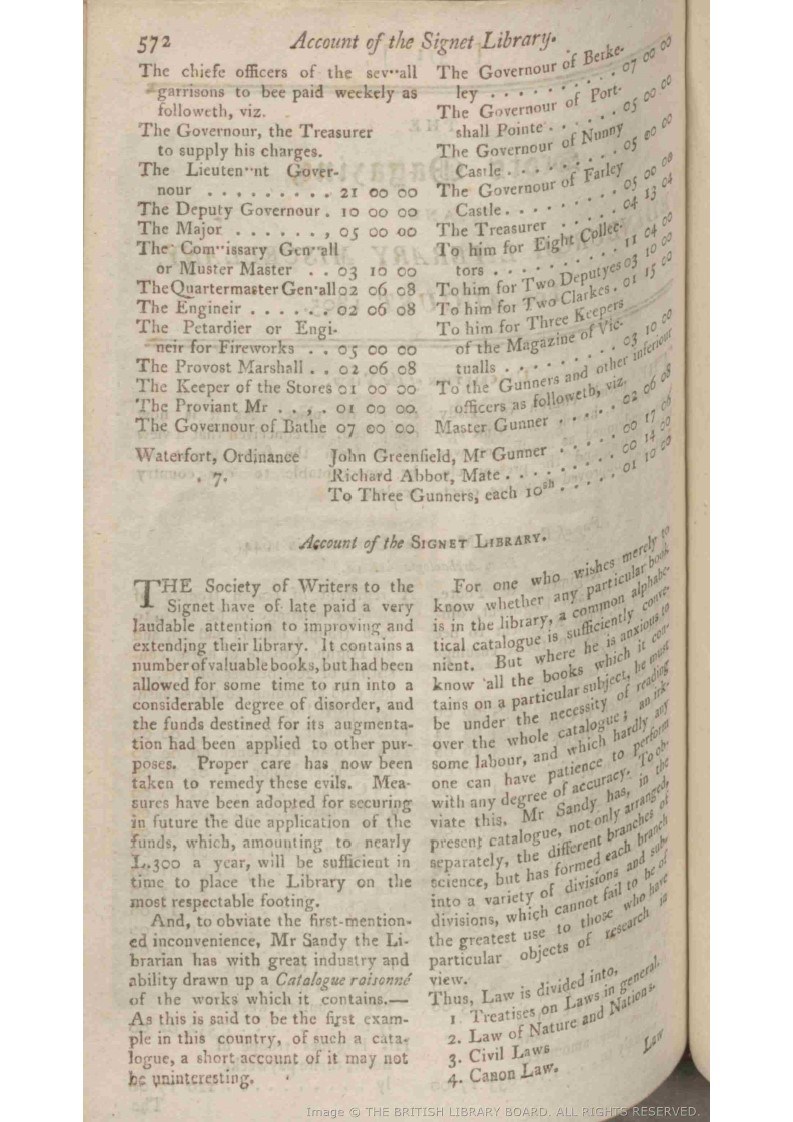 572
Account of the Signet Library.
The chiefe officers of the sev··all
garrisons to bee paid weekely as
followeth, viz.
The Governour, the Treasurer
to supply his charges.
The Lieuten··nt Gover-
nour . . . . . . . . . 21 00 00
The Deputy Governour . 10 00 00
The Major . . . . . . , 05 00 00
The Com··issary Gen··all
or Muster Master . . 03 10 00
The Quartermaster Gen·all 02 06 08
The Engineir . . . . . . 02 06 08
The Petardier or Engi-
neir for Fireworks . . 05 00 00
The Provost Marshall . . 02 06 08
The Keeper of the Stores 01 00 00
The Proviant Mr . . , . 01 00 00
The Governour of Bathe 07 00 00
The Governour of Berke-
ley . . . . . . . . . 07 00 00
The Governour of Port-
shall Pointe . . . . . 05 00 00
The Governour of Nunny
Castle . . . . . . . . 05 00 00
The Governour of Farley
Castle . . . . . . . . 05 00 00
The Treasurer . . . . . 04 13 04
To him for Eight Collec-
tors . . . . . . . . . 11 04 00
To him for Two Deputyes 03 10 00
To him for Two Clarkes . 01 15 00
To him for Three Keepers
of the Magazine of Vic-
tualls . . . . . . . . 03 10 00
To the Gunners and other inferiour
officers as followeth, viz.
Master Gunner . . . . . 02 06 08
Waterfort, Ordinance
. 7.
John Greenfield, Mr Gunner . . . . . 00 17 06
Richard Abbot, Mate . . . . . . . . 00 14 00
To Three Gunners, each 10sh . . . . . 01 10 00
Account of the SIGNET LIBRARY.
THE Society of Writers to the
Signet have of late paid a very
laudable attention to improving and
extending their library. It contains a
number of valuable books, but had been
allowed for some time to run into a
considerable degree of disorder, and
the funds destined for its augmenta-
tion had been applied to other pur-
poses. Proper care has now been
taken to remedy these evils. Mea-
sures have been adopted for securing
in future the due application of the
funds, which, amounting to nearly
L.300 a year, will be sufficient in
time to place the Library on the
most respectable footing.
And, to obviate the first-mention-
ed inconvenience, Mr Sandy the Li-
brarian has with great industry and
ability drawn up a Catalogue raisonné
of the works which it contains.—
As this is said to be the first exam-
ple in this country, of such a cata-
logue, a short account of it may not
be uninteresting.
For one who wishes merely to
know whether any particular book
is in the library, a common alphabe-
tical catalogue is sufficiently conve-
nient. But where he is anxious to
know all the books which it con-
tains on a particular subject, he must
be under the necessity of reading
over the whole catalogue; an irk-
some labour, and which hardly any
one can have patience to perform
with any degree of accuracy. To ob-
viate this, Mr Sandy has, in the
present catalogue, not only arranged,
separately, the different branches of
science, but has formed each branch
into a variety of divisions and sub-
divisions, which cannot fail to be of
the greatest use to those who have
particular objects of research in
view.
Thus, Law is divided into,
1 Treatises on Laws in general.
2. Law of Nature and Nations.
3. Civil Laws
4. Canon Law.
Law
Image © THE BRITISH LIBRARY BOARD. ALL RIGHTS RESERVED.